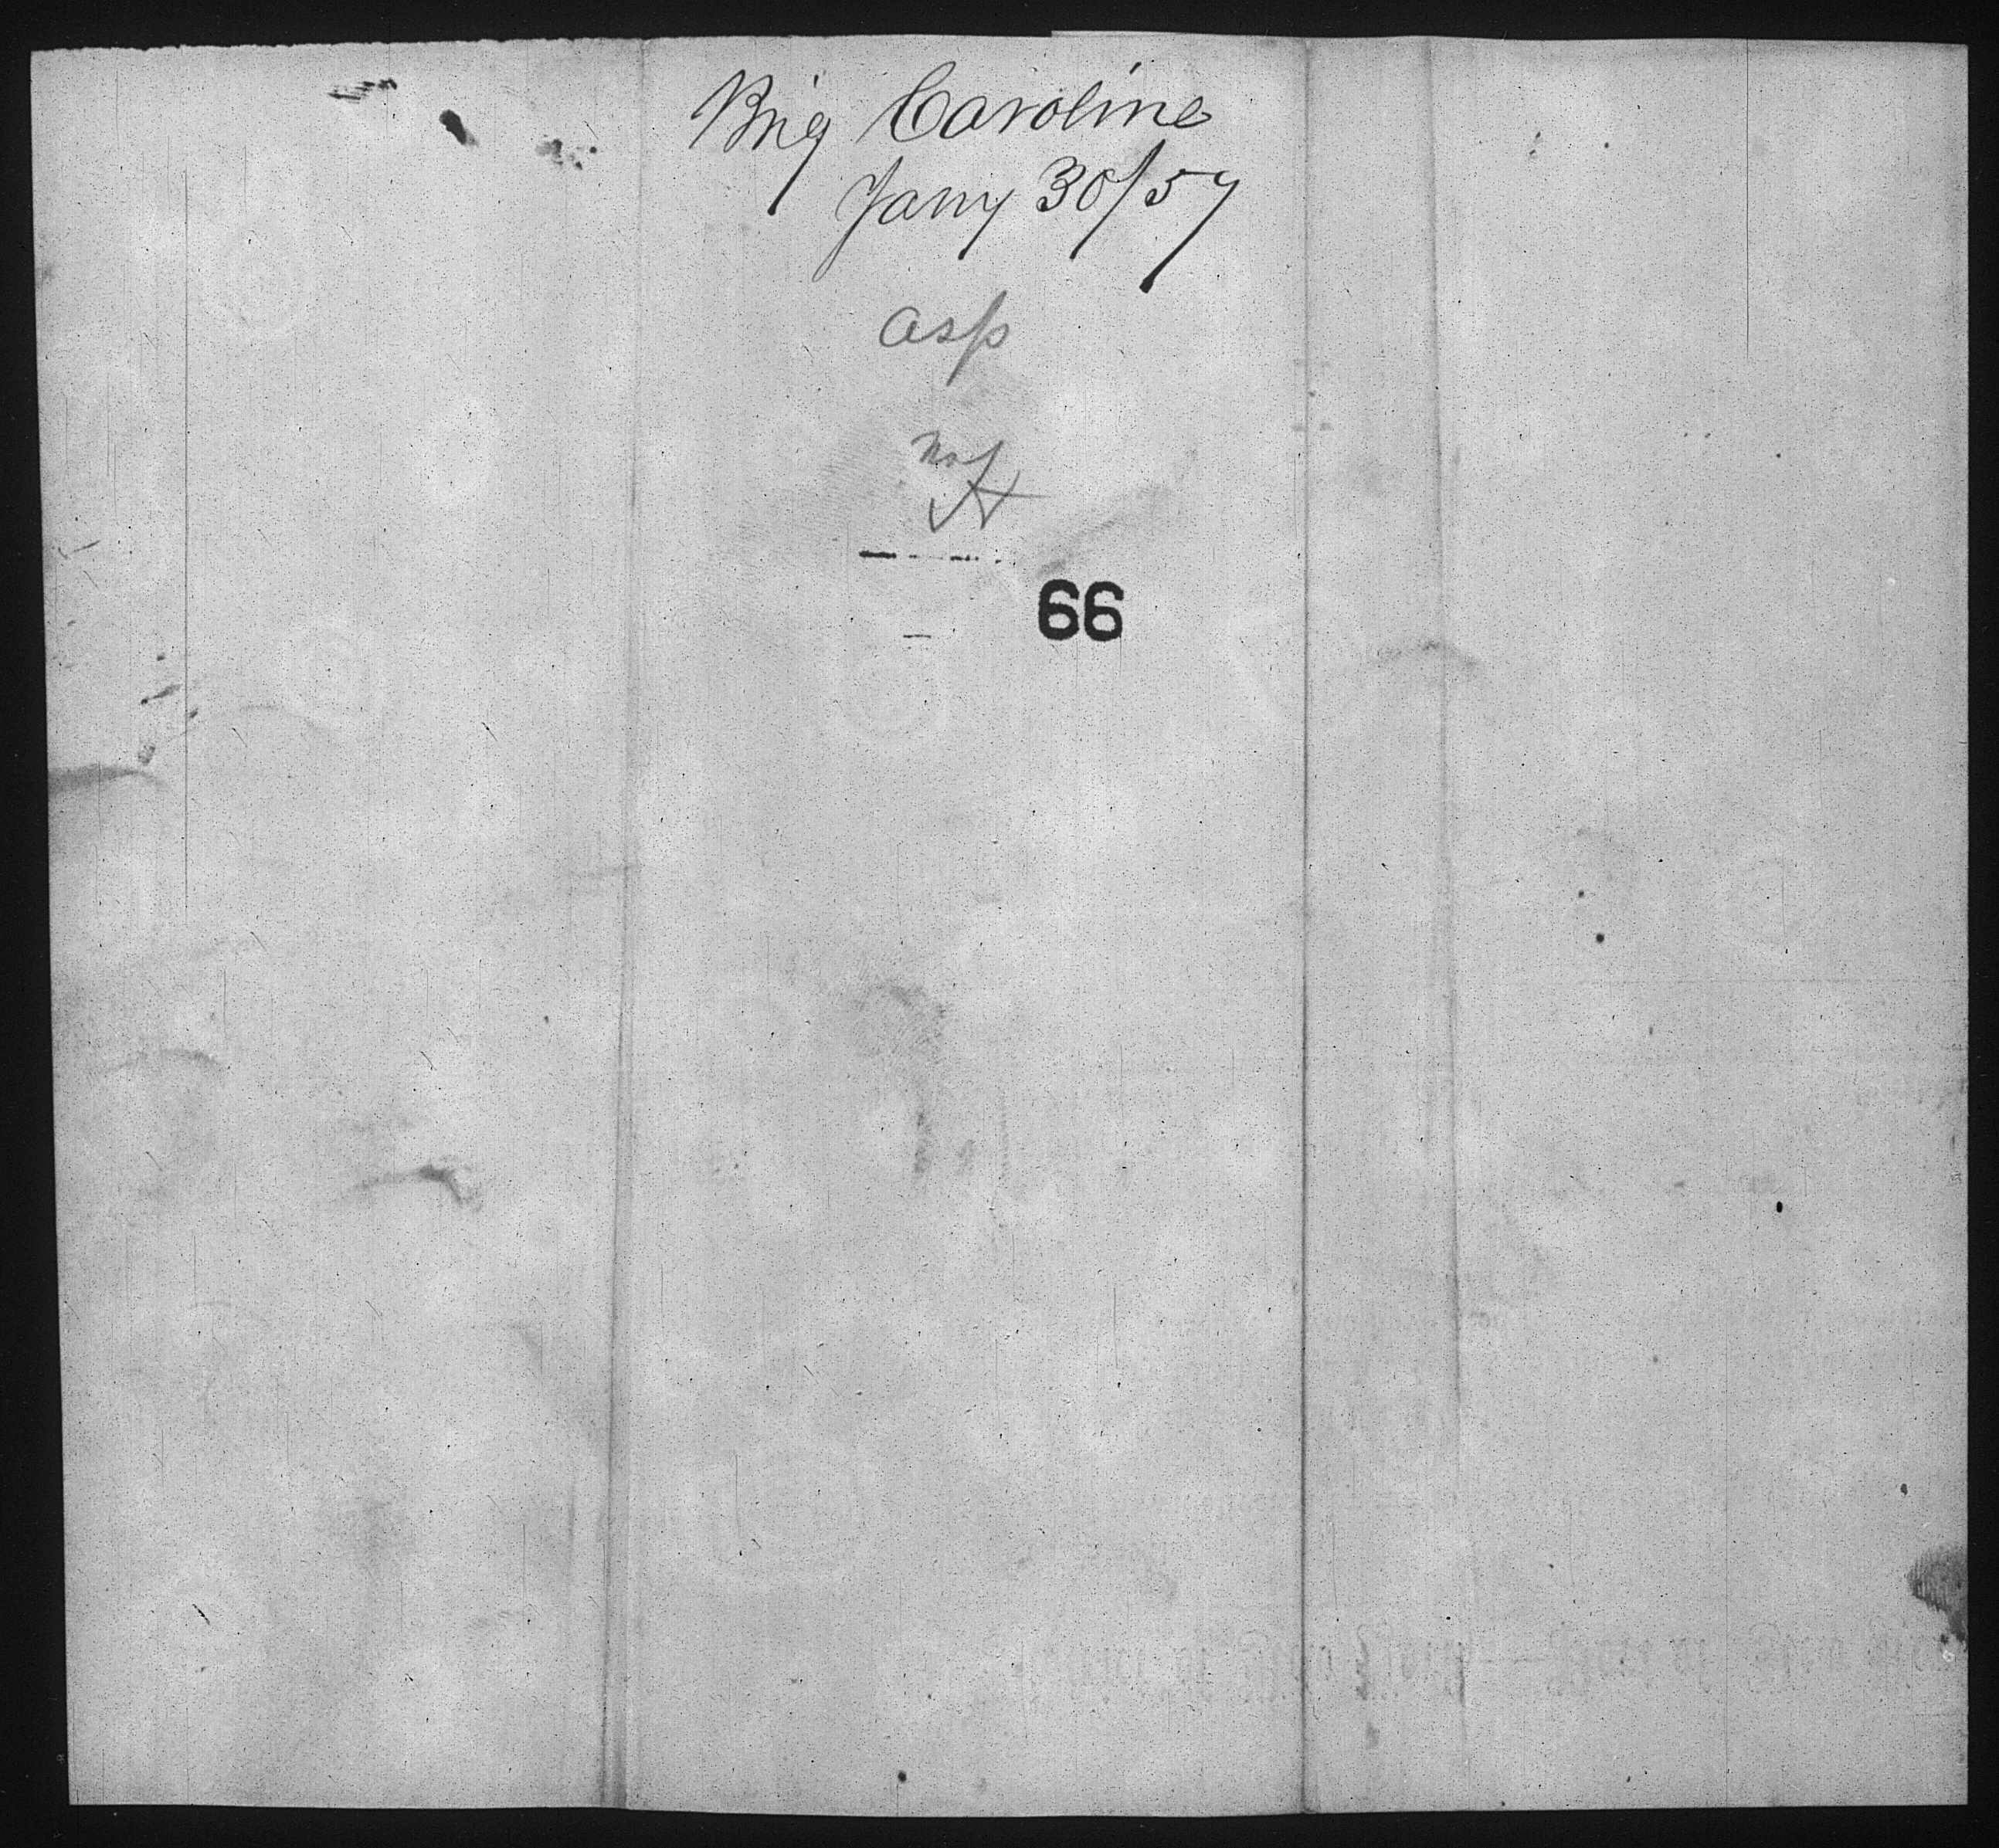 Brig Caroline
Jany 30/57
asp
66